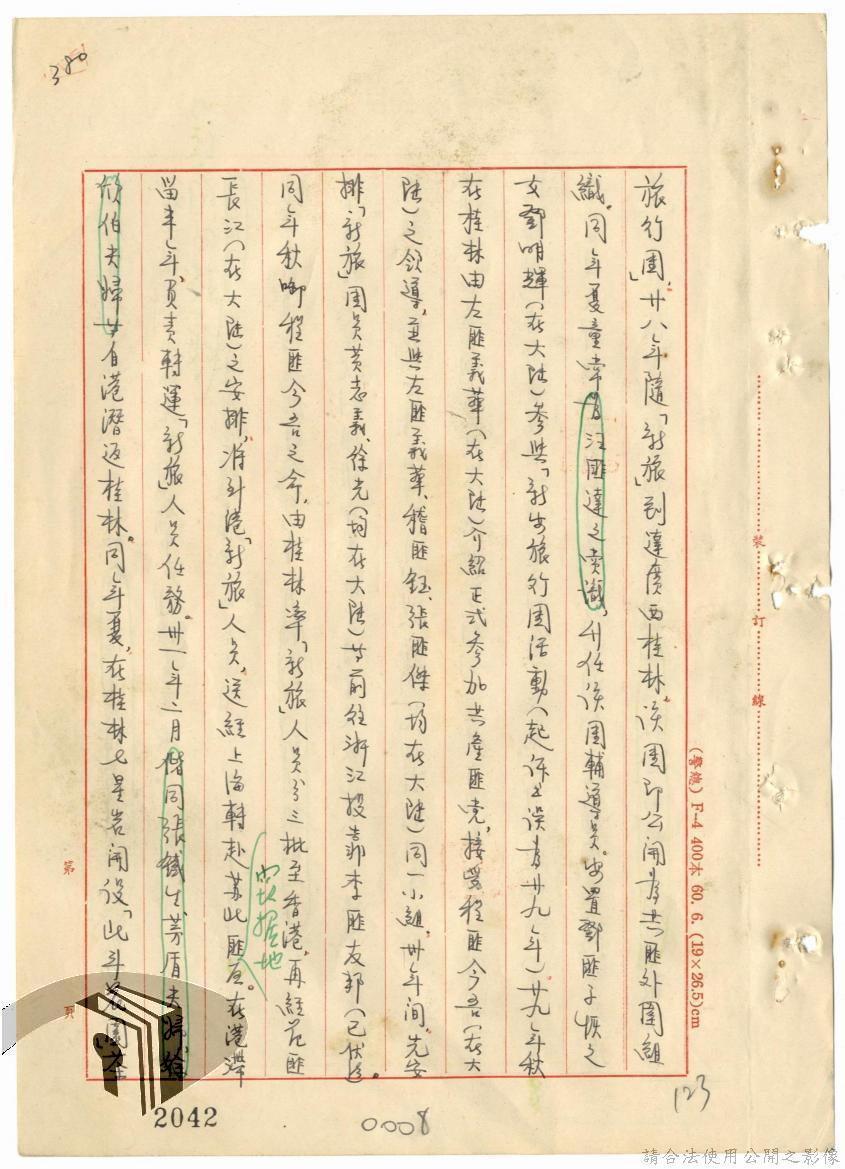 380
旅行團」,廿八年隨「新旅」到達廣西桂林,該團即公開為共匪外圍組
織。同年夏童常為汪匪達之賞識,升任該團輔導員。安置鄧匪子恢之
女鄧明輝(在大陸)參與「新安旅行團活動(起訴書誤為廿九年)廿九年秋
在桂林由左匪義華(在大陸)介紹正式參加共產匪党,接受程匪今吾(在大
陸)之領導,並與左匪義華、稽匪鈺、張匪傑(均在大陸)同一小組,卅年間,先安
排「新旅」團員黃志義、徐光(均在大陸)等前往浙江投靠李匪友邦(已伏法)。
同年秋啣程匪今吾之命,由桂林率「新旅」人員分三批至香港,再經范匪
長江(在大陸)之安排,將到港「新旅」人員,送經上海轉赴蘇北匪區。在港滯
竄據地
留半年,負責轉運「新旅」人員任務。卅一年二月偕同張鐵生、茅盾夫婦、徐
頎伯夫婦等自港潛返桂林。同年夏,在桂林七星岩開設「北斗茶園茶
第 頁
裝 訂 線
(警總)F-4 400本 60. 6. (19×26.5)cm
123
2042
0008
請合法使用公開之影像